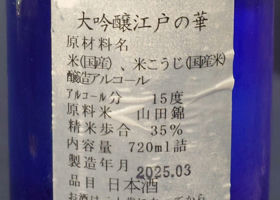 大吟醸江戸の華
原材料名
米(国産)、米こうじ(国産米)
醸造アルコール
アルコール分 15度
原料米 山田錦
精米歩合 35%
内容量 720ml詰
製造年月 2025.03
品目 日本酒
お酒は二十歳になってから